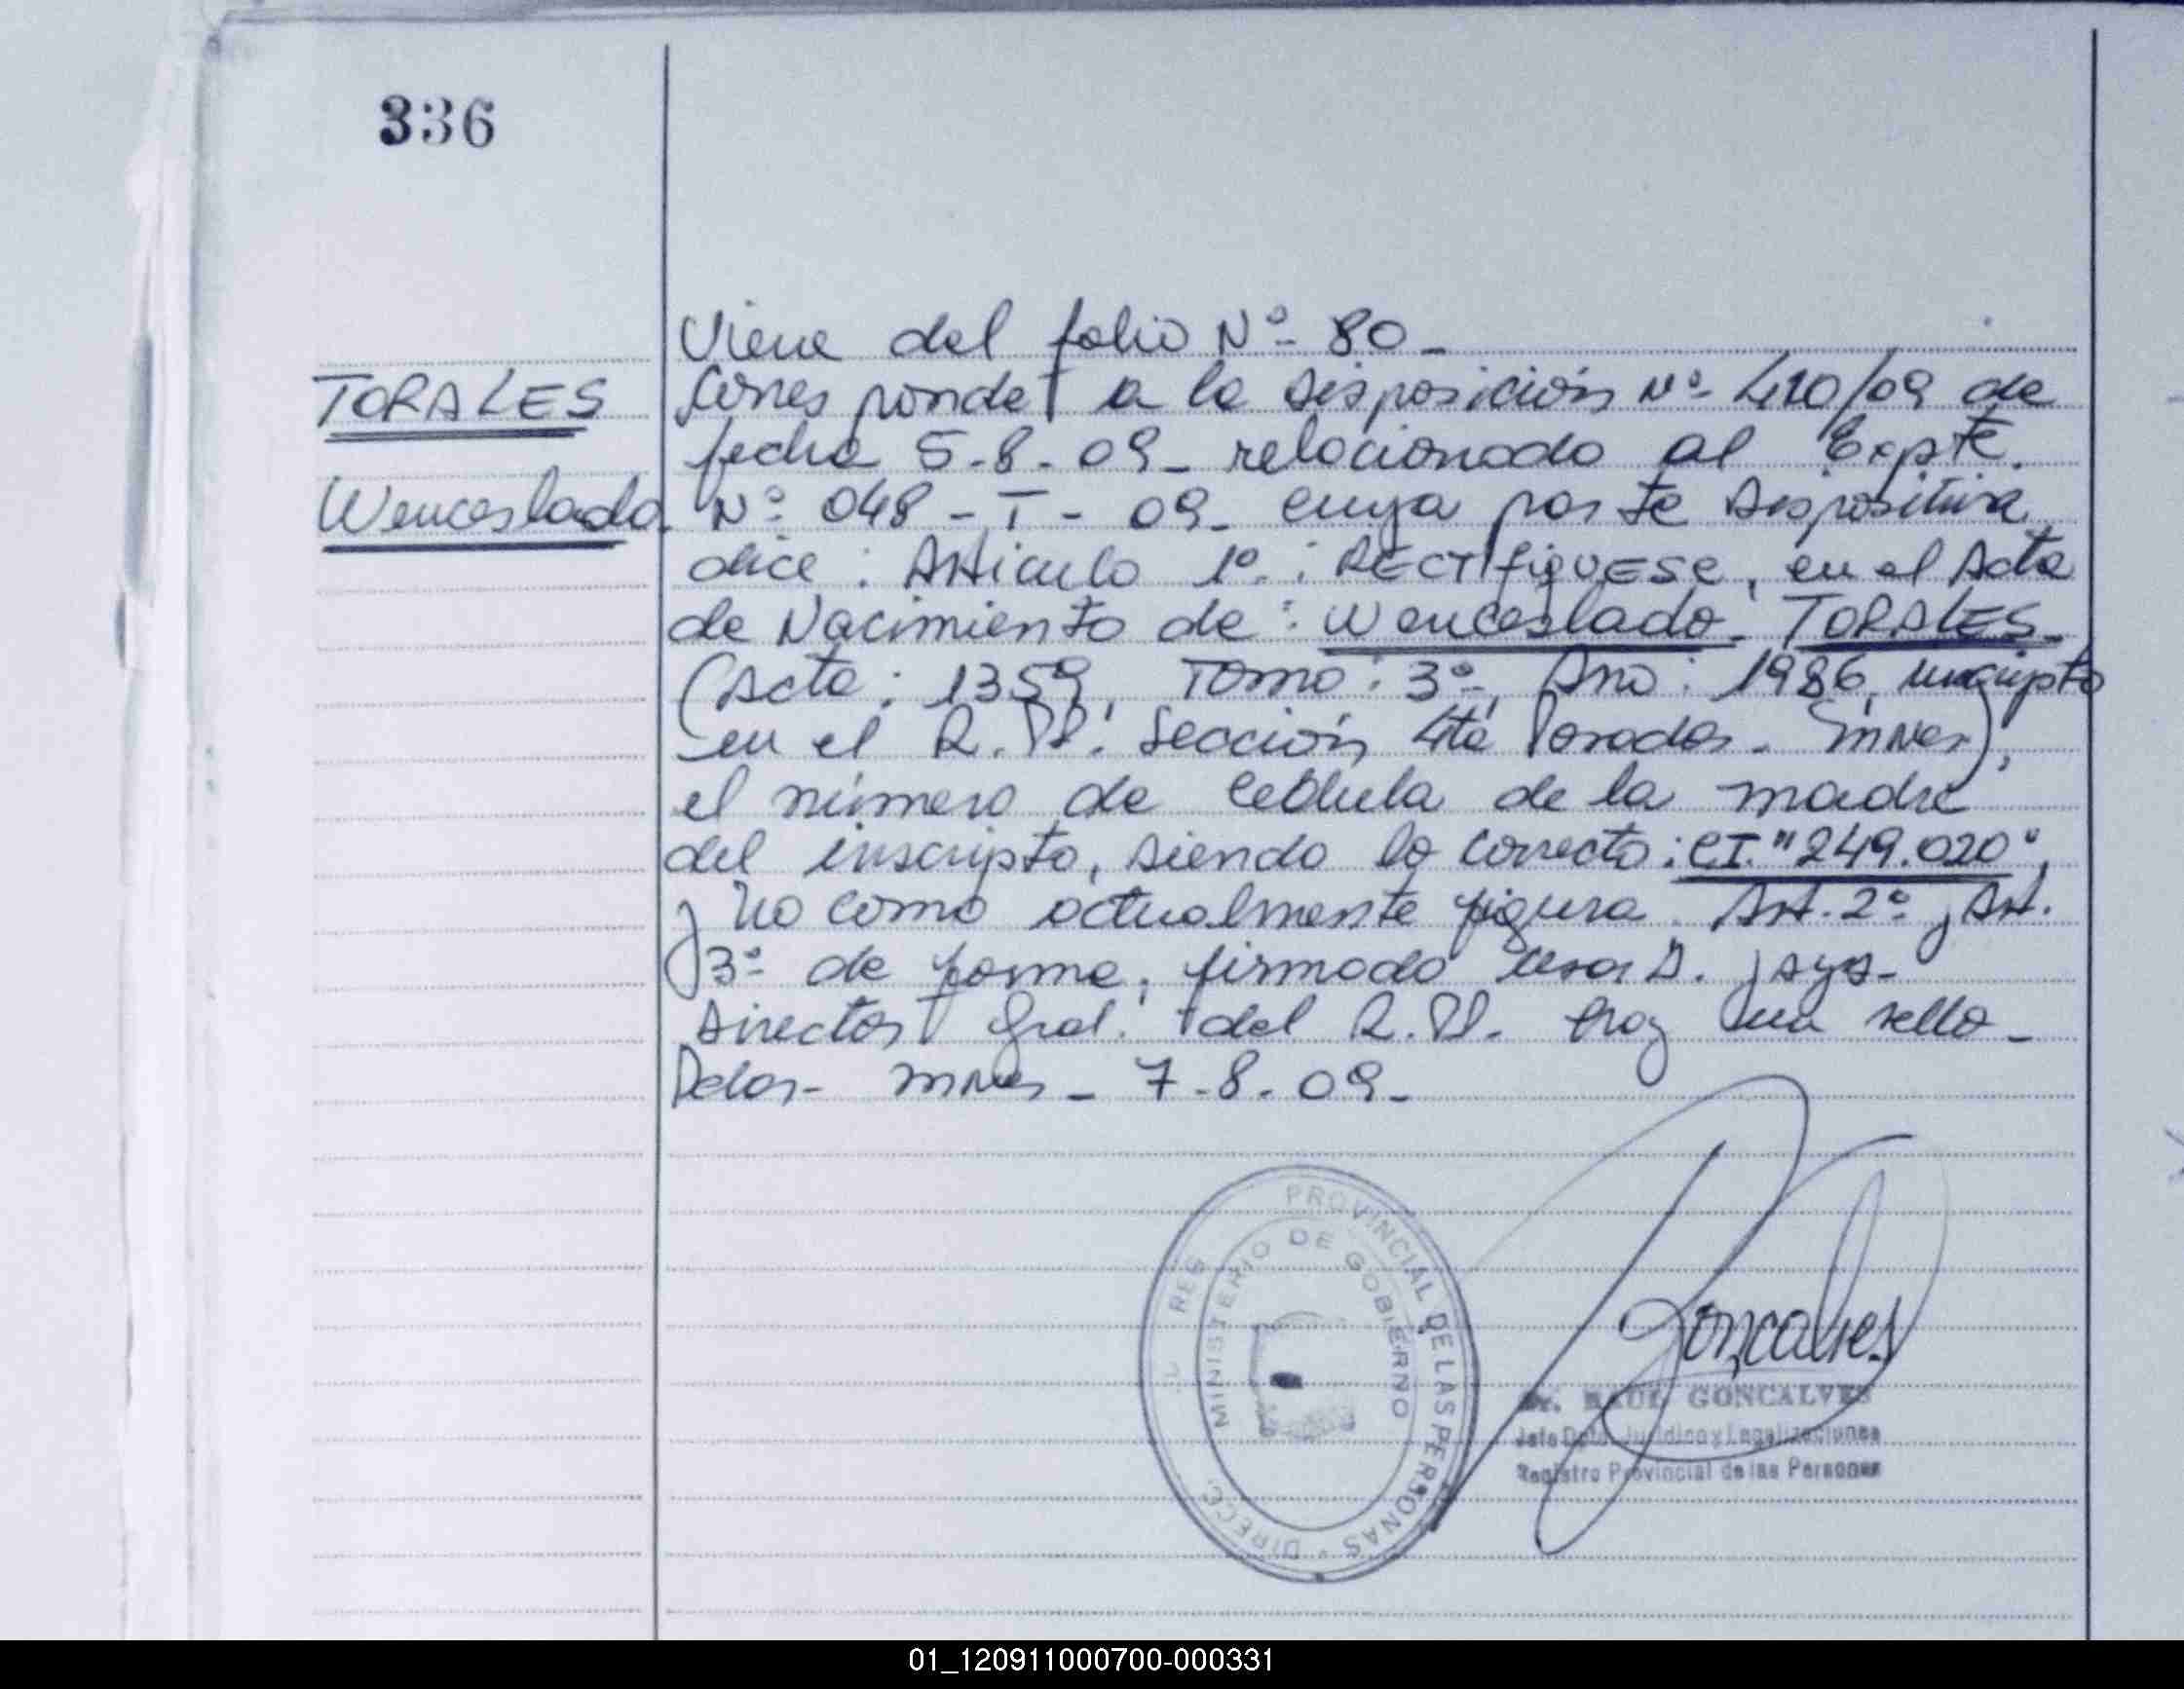 336
Viene del folio Nº- 80_
TORALES
Corresponde a la Disposición Nº- 410/09 de
fecha 5-8-09_ relacionado al Expte.
Wenceslado.
Nº 048 - T - 09_ cuya parte Dispositiva
dice: Articulo 1º.: RECTIfiqUESE, en el Acta
de Nacimiento de: Wenceslado. TORALES_
(Acta: 1359, Tomo: 3º-, Año: 1986, inscripto
en el R.P.P. Sección, 4ta Posadas - Mnes),
el número de Cedula de la madre
del inscripto, siendo lo correcto: CI. "249.020",
y no como actualmente figura. Art. 2º y Art.
3º- de forma, firmado D.
Director Gral. del R.P.P. Hay un sello_
Pdas- Mnes_ 7-8.09_
PROVINCIAL DE LAS PERSONAS
MINISTERIO DE GOBIERNO
DIRECC.
REG
Goncalves
Dr. RAUL GONCALVES
Jefe Dpto. Jurídico y Legalizaciones
Registro Provincial de las Personas
01_120911000700-000331